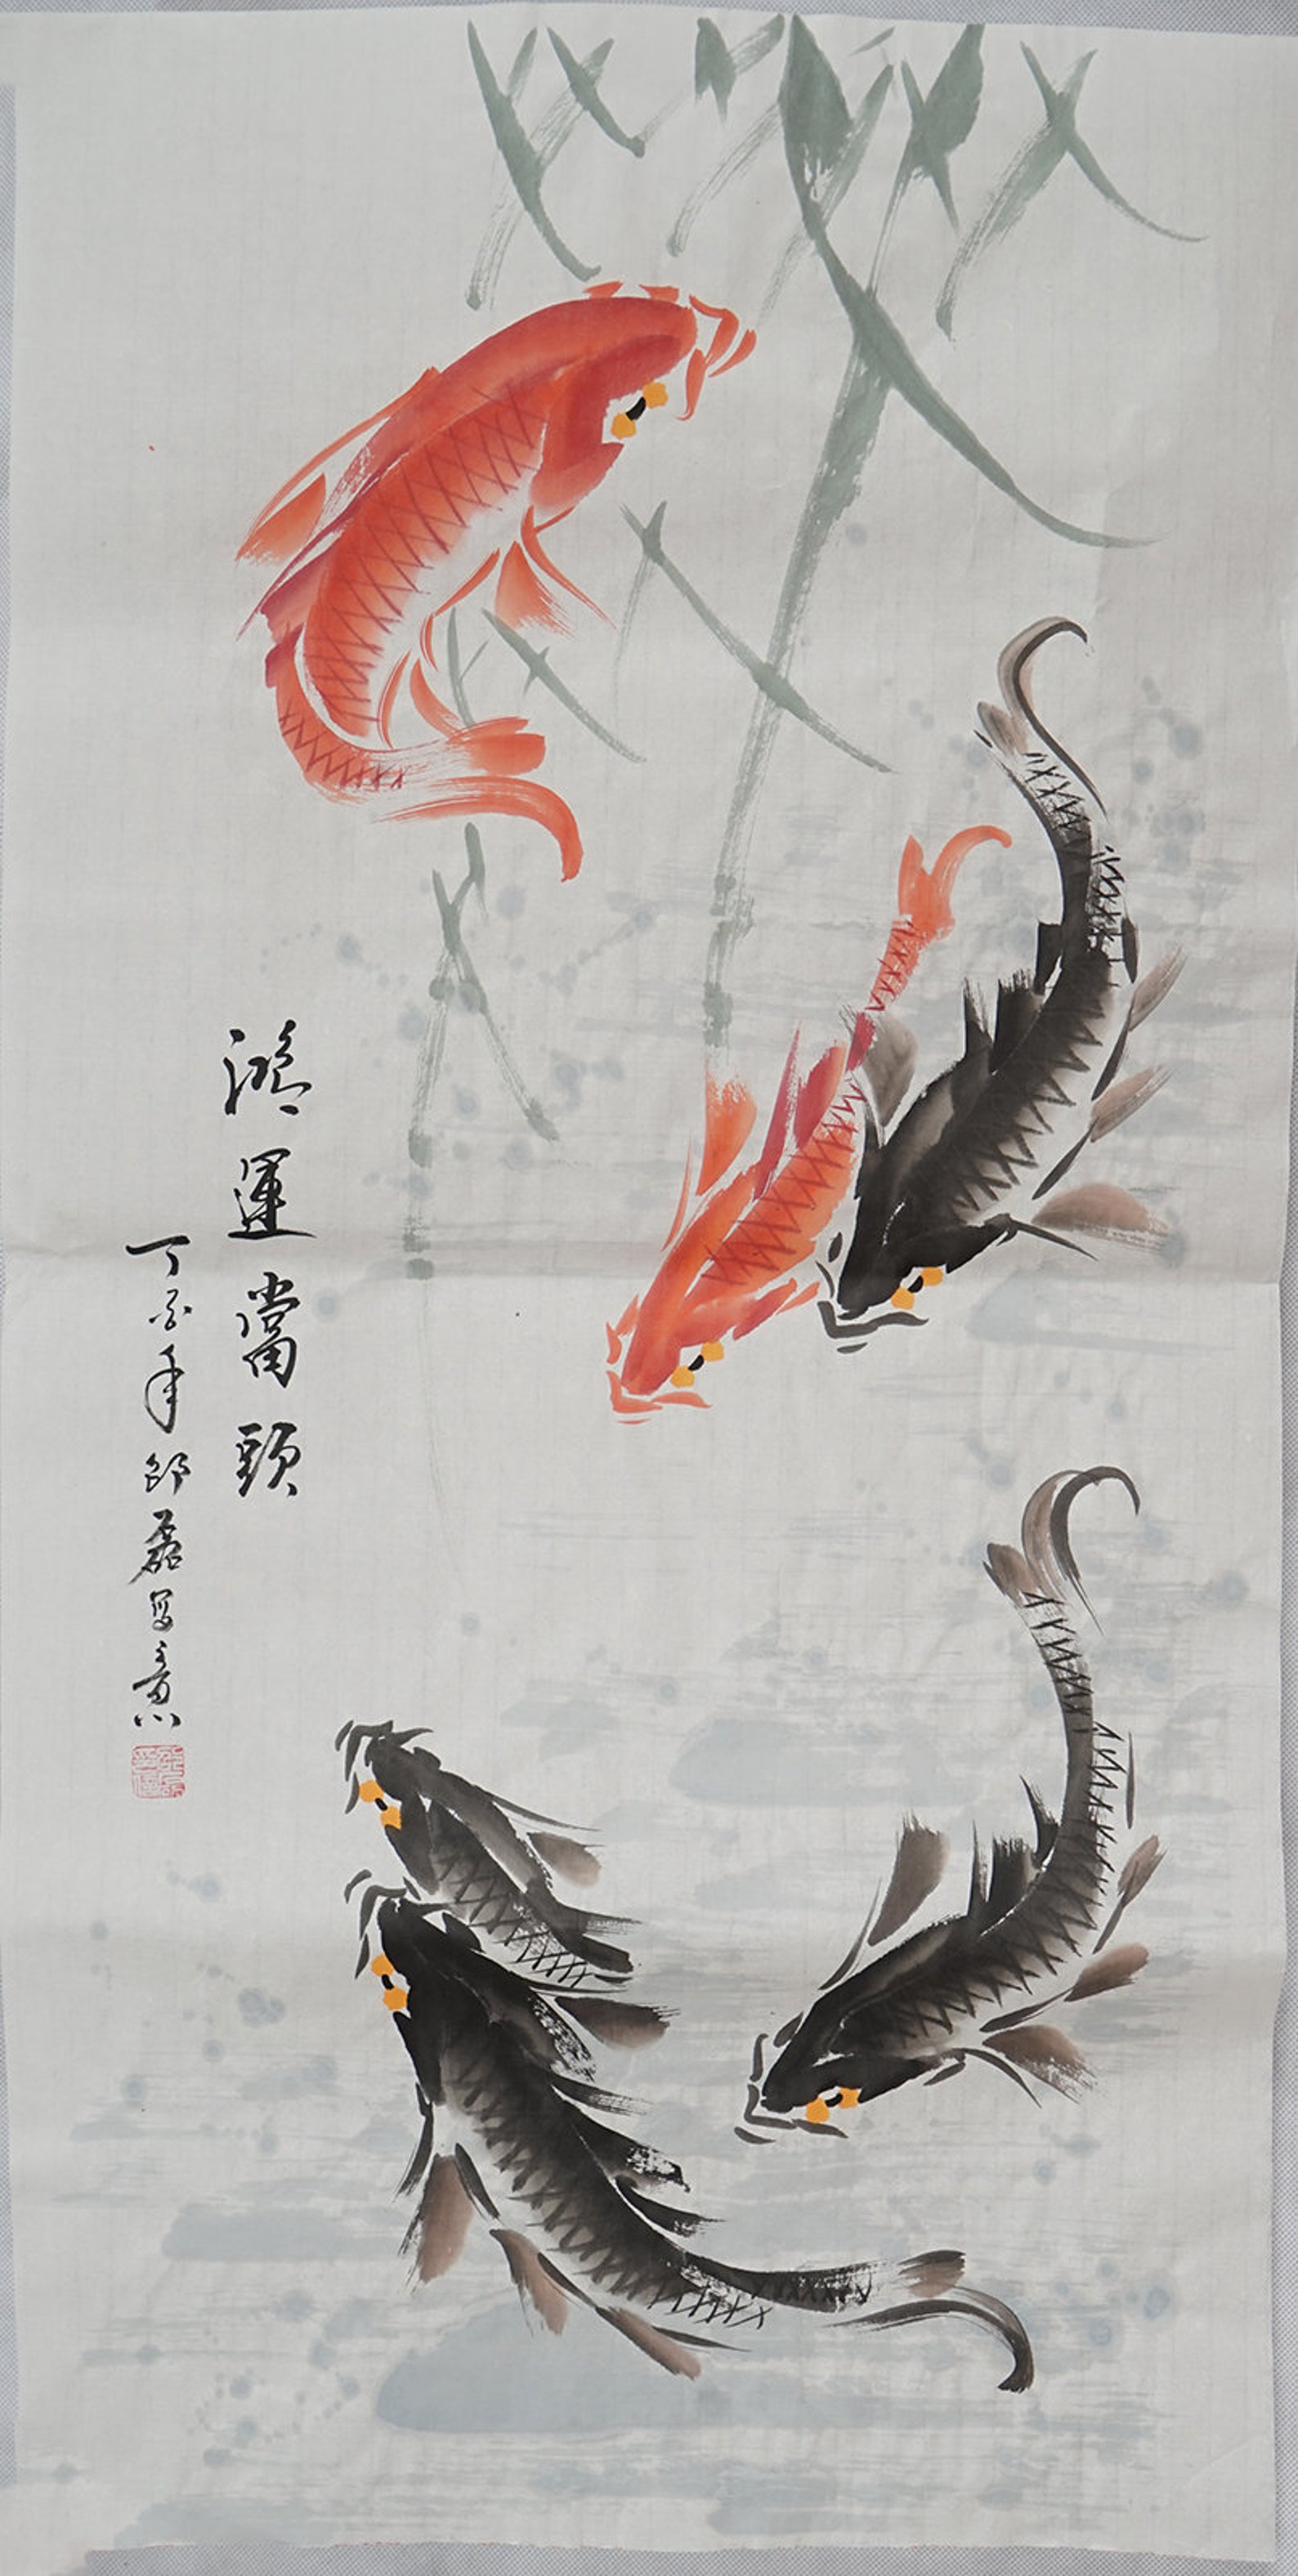 鴻運當頭
丁酉年邵磊写意